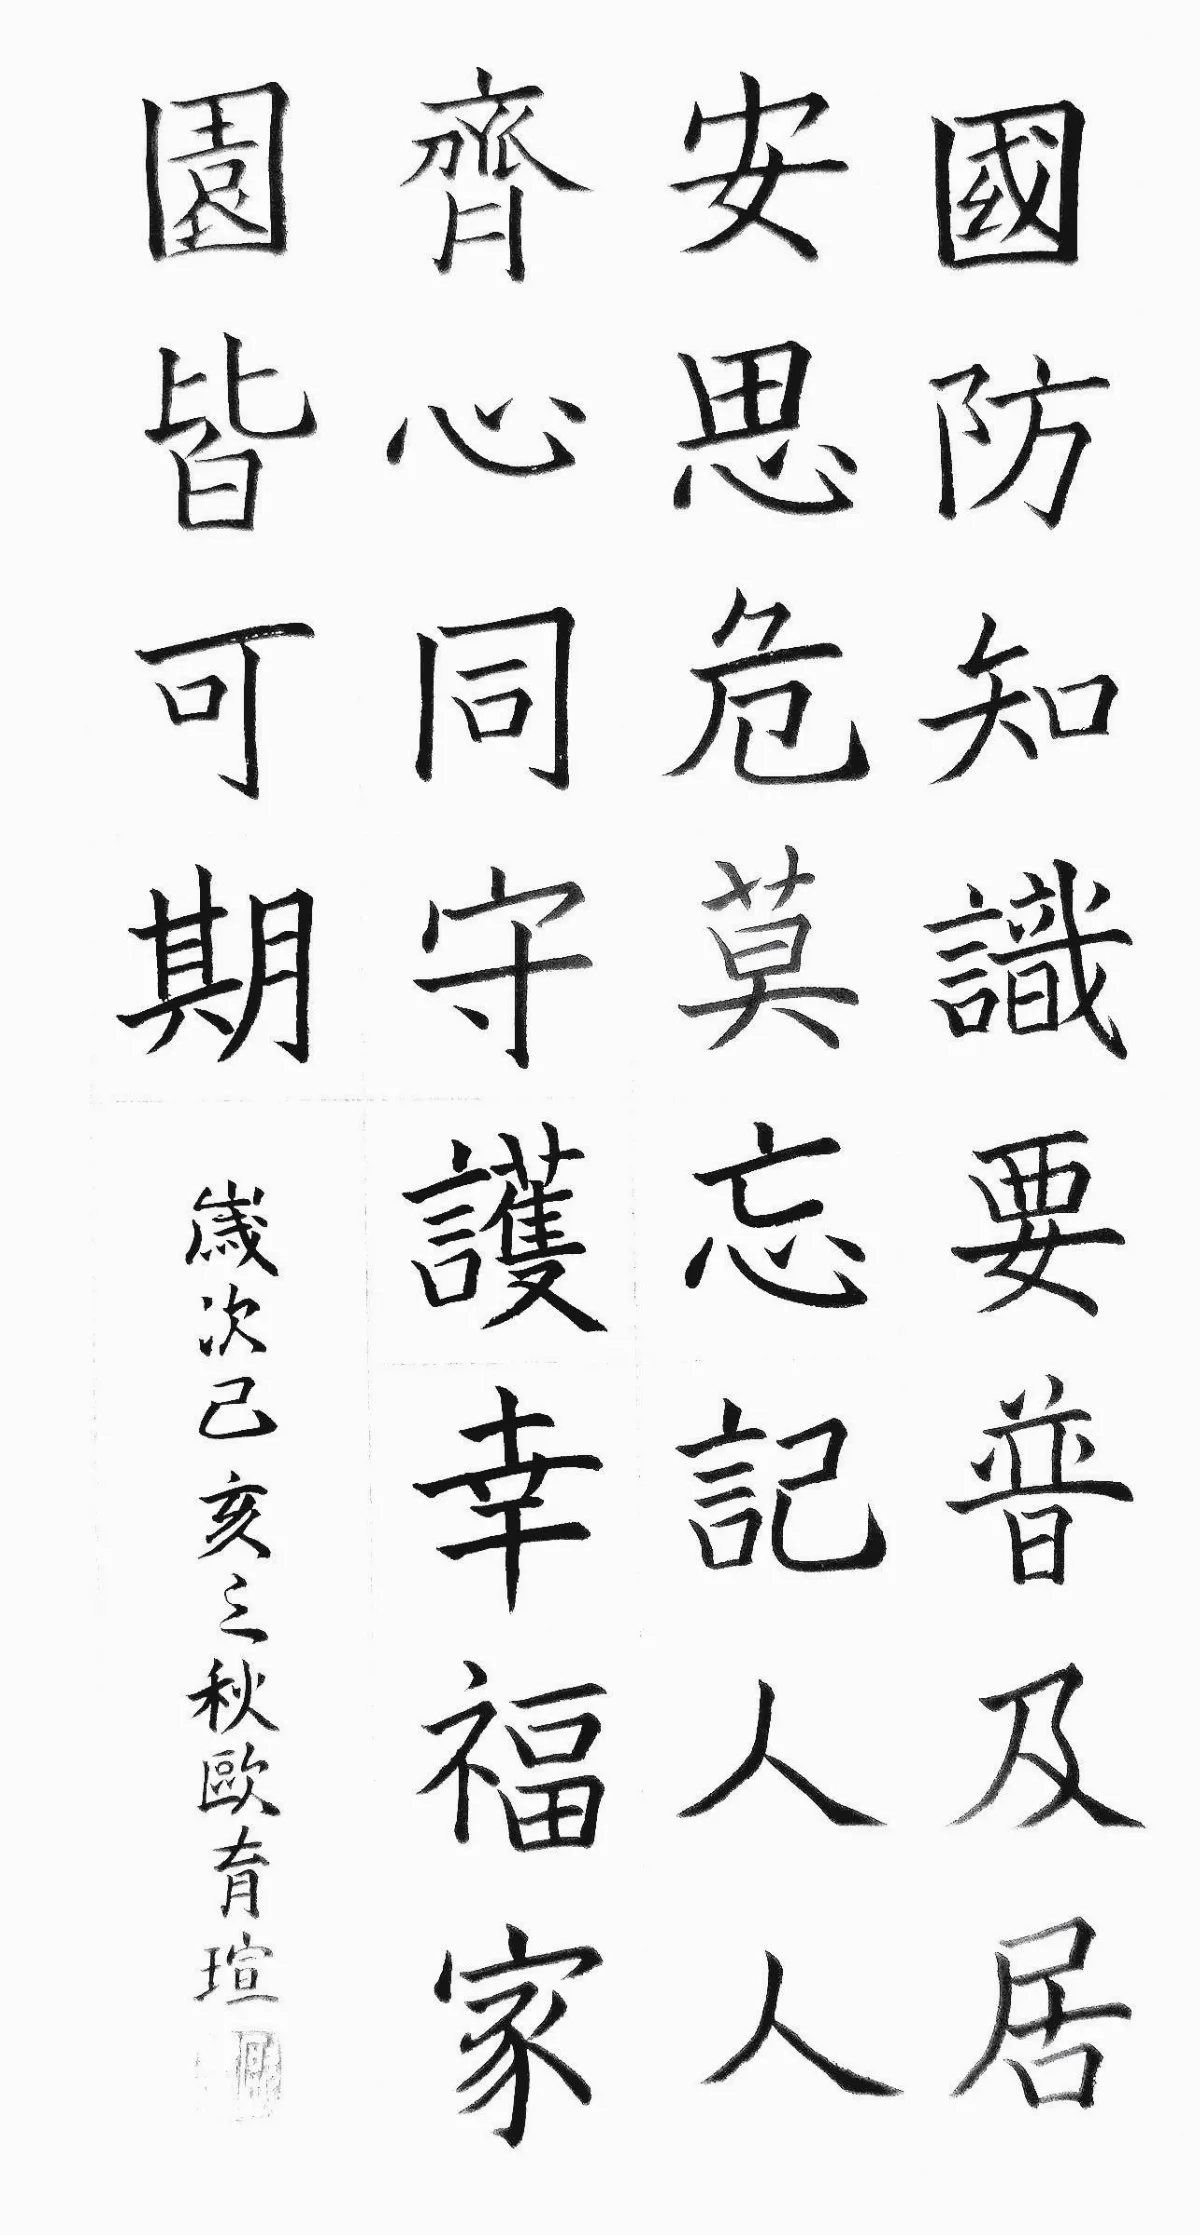 國防知識要普及居
安思危莫忘記人人
齊心同守護幸福家
園皆可期
歲次己亥之秋歐育瑄